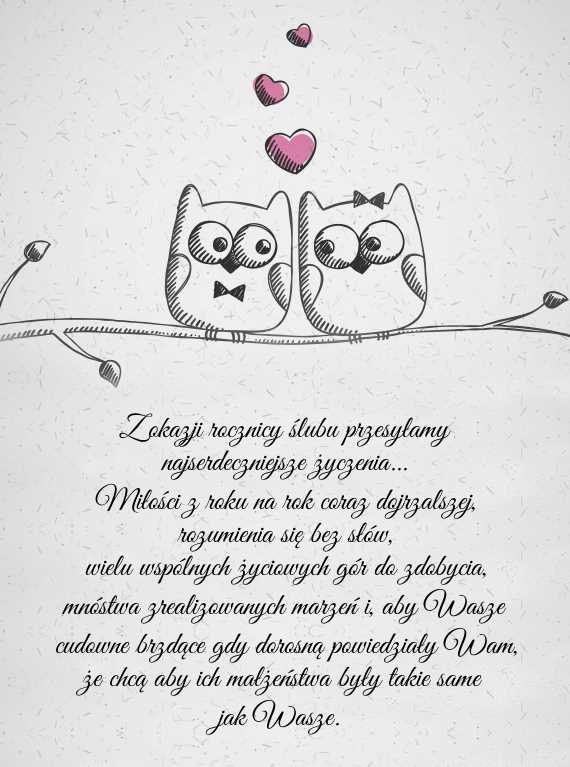 Zokazji rocznicy ślubu przesyłamy
najserdeczniejsze życzenia...
Miłości z roku na rok coraz dojrzalszej,
rozumienia się bez słów,
wielu wspólnych życiowych gór do zdobycia,
mnóstwa zrealizowanych marzeń i, aby Wasze
cudowne brzdące gdy dorosną powiedziały Wam,
że chcą aby ich małżeństwa były takie same
jak Wasze.